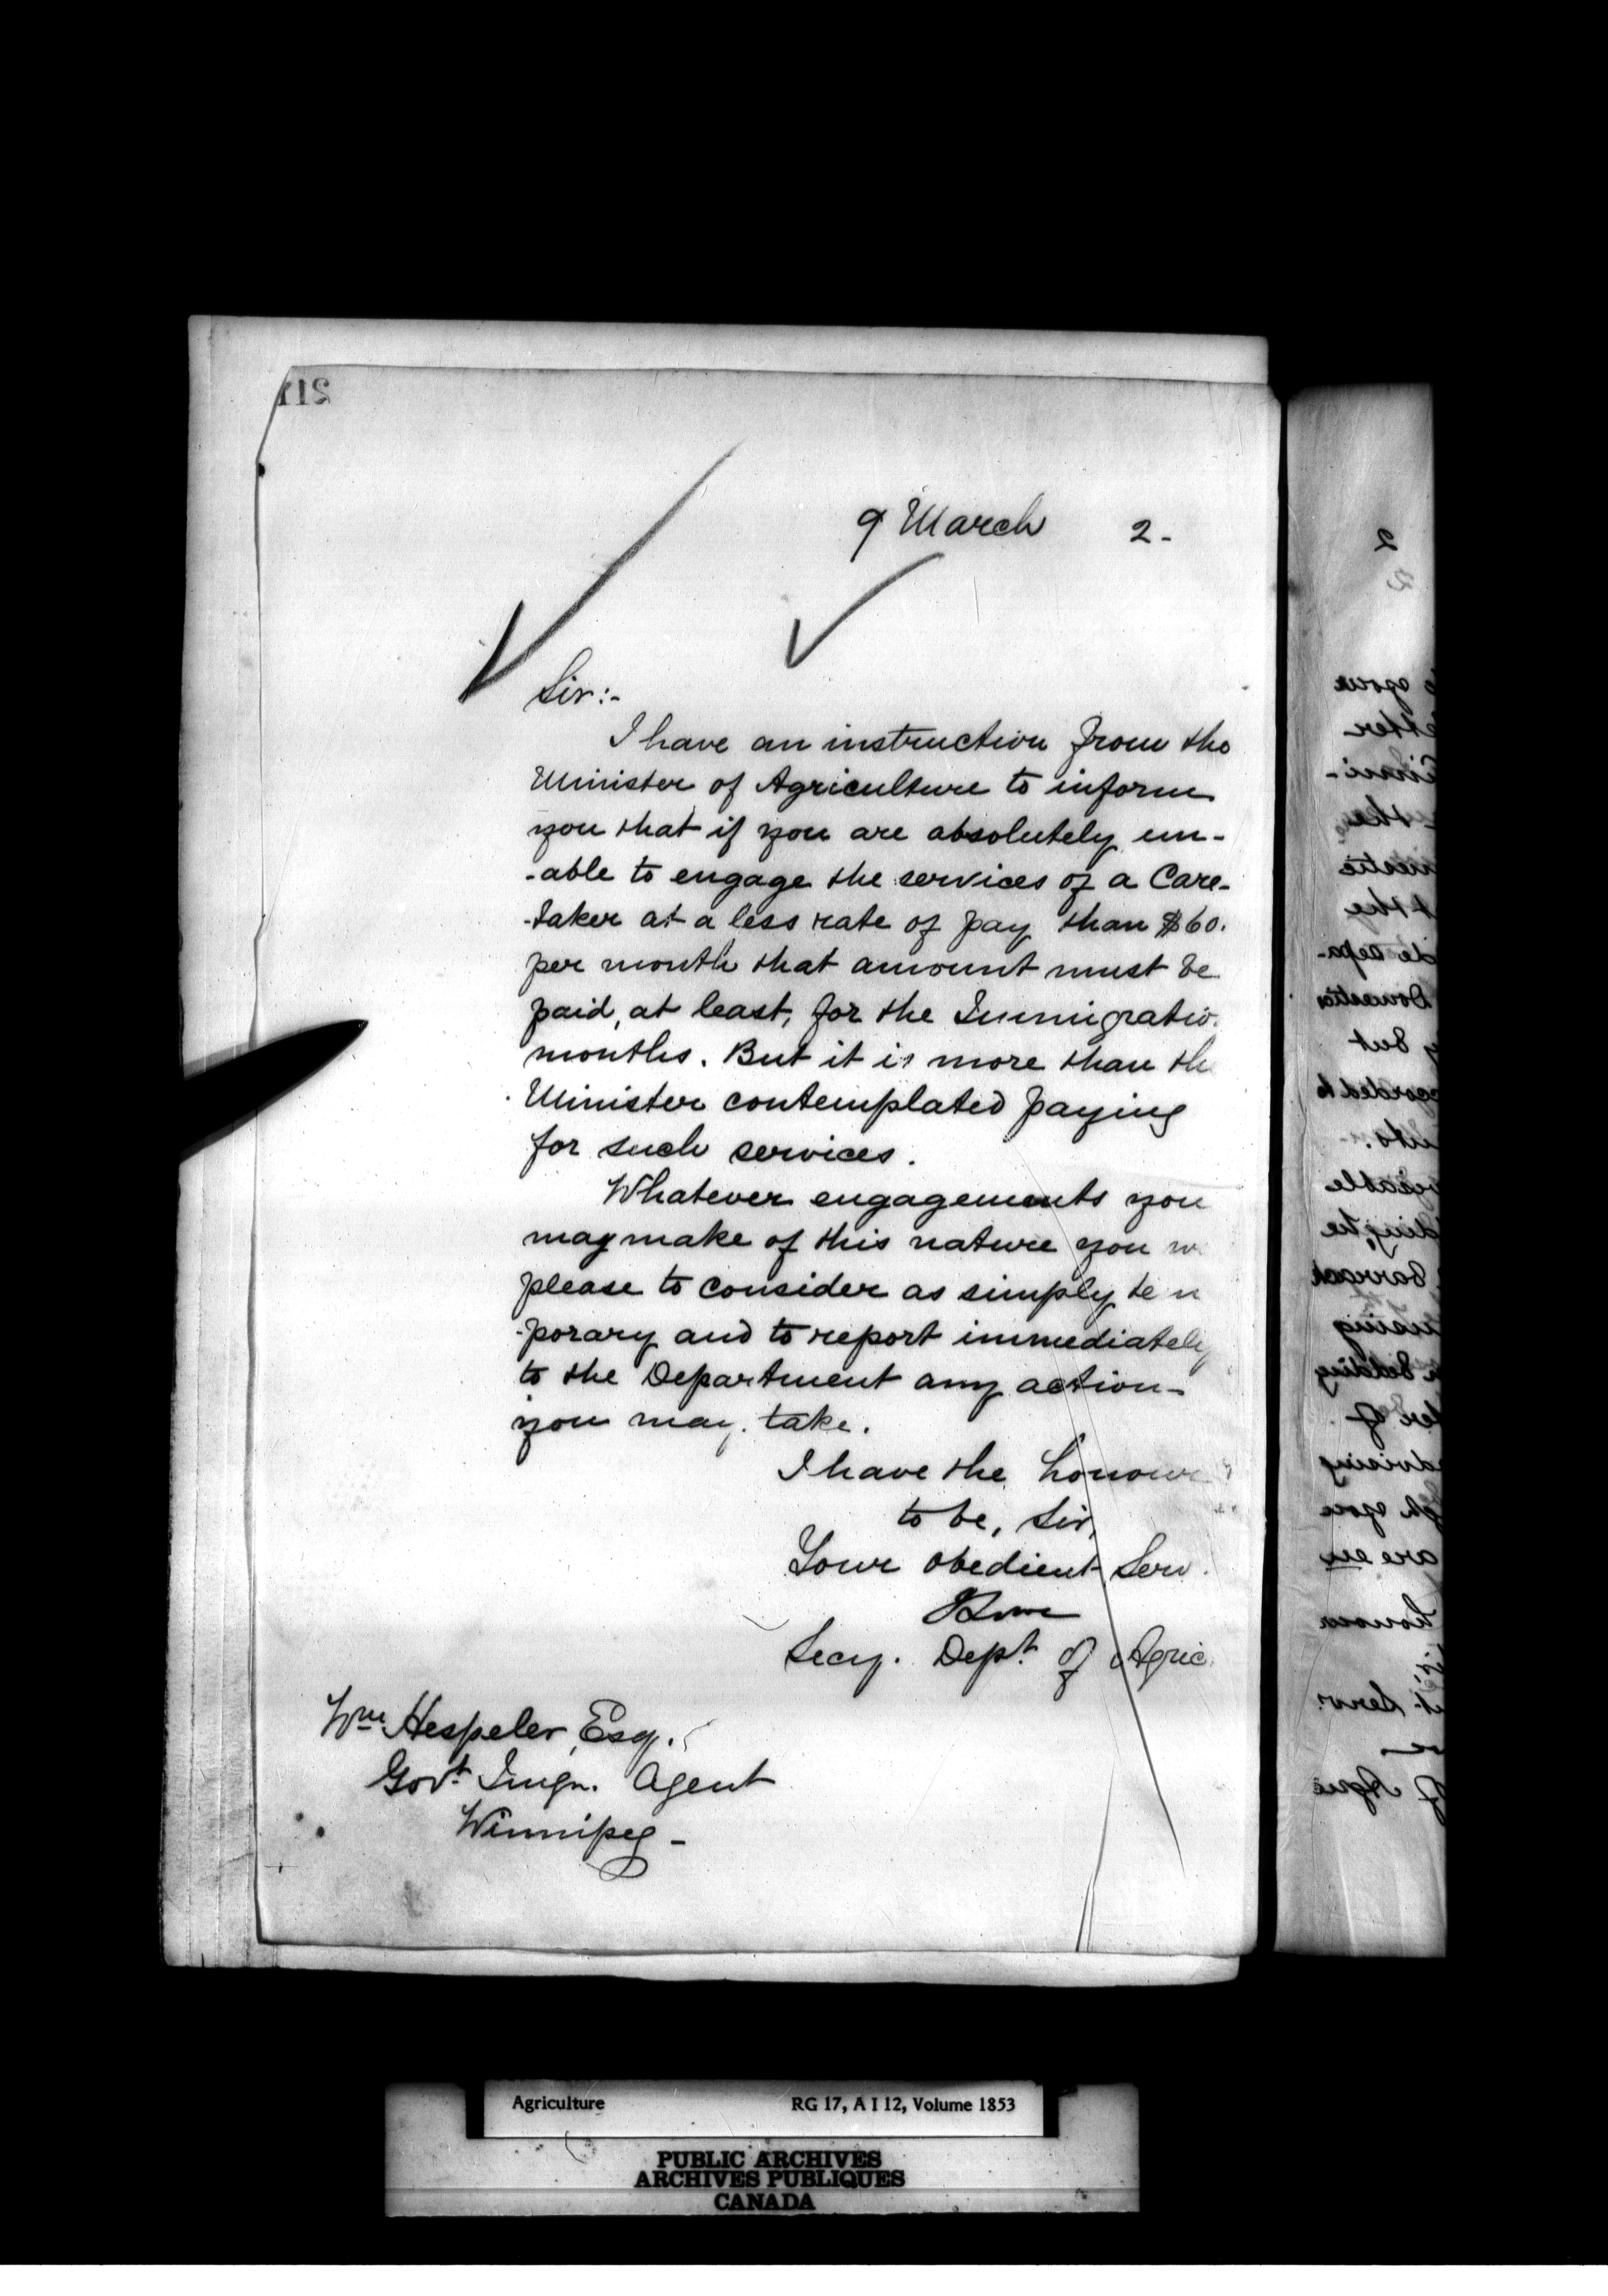 211
9 March 2-
Sir:-
I have an instruction from the
Minister of Agriculture to inform
you that if you are absolutely un-
-able to engage the services of a Care-
-taker at a less rate of pay than $60.
per month that amount must be
paid, at least, for the Immigratio
months. But it is more than th
Minister contemplated paying
for such services.
Whatever engagements you
may make of this nature you w
please to consider as simply tem
-porary and to report immediately
to the Department any action
you may take.
I have the honour
to be, Sir,
Your obedient Serv.
JLowe
Secy. Dept. of Agric.
Wm Hespeler, Esq.
Govt. Imgn. Agent
Winnipeg -
2
you
etter
the
mestic
t the
de depa-
Domestic
but
ccorded to
visable
ding, the
Barrack
using
bedding
der of
dvising
gh you
are en
honour
t Serv.
f Agric
Agriculture RG 17, A I 12, Volume 1853
PUBLIC ARCHIVES
ARCHIVES PUBLIQUES
CANADA